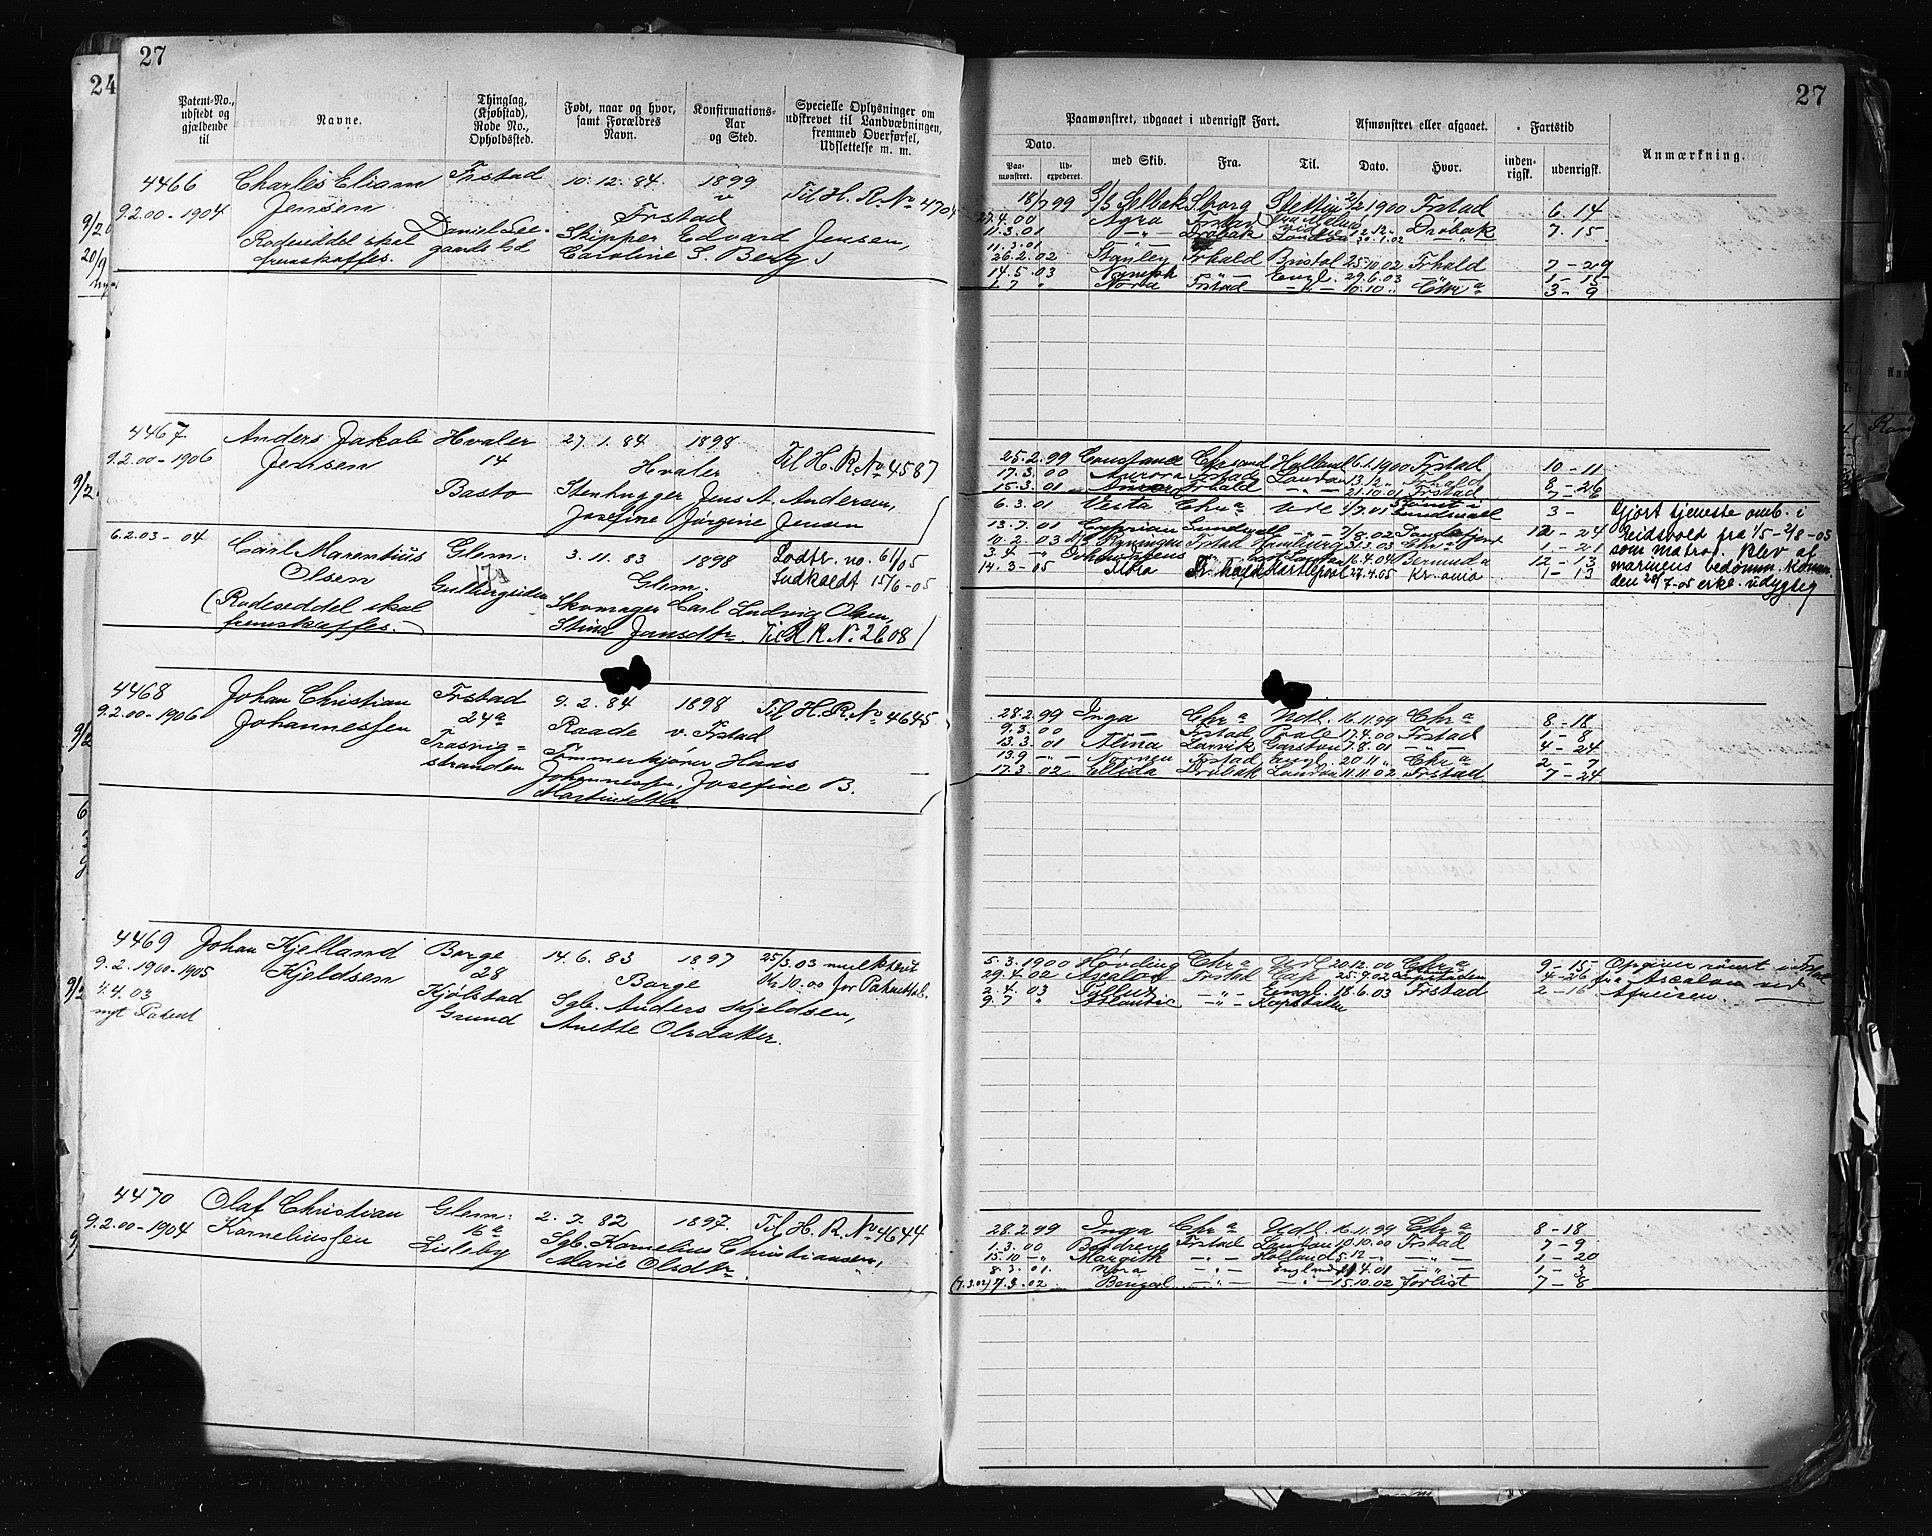 27
24
Patent-No., udstedt og gjældende til
Navne.
Thinglag, (Kjøbstad), Rode No., Opholdssted.
Født, naar og hvor, samt Forældres Navn.
Konfirmations-Aar og Sted.
Specielle Oplysninger om udskrevet til Landvæbningen, fremmed Overførsel, Udslettelse m. m.
4466 Charles Eliam Frstad 10.12.84. 1899 Til H. R. No 4704
9.2.00-1904 Jensen Frstad
Rodeseddel skal Skipper Edvard Jensen,
fremskaffes. Caroline S. Berg
4467 Anders Jakob Hvaler 27.1.84 1898 Til H. R. No 4587
9.2.00-1906 Jensen 14 Hvaler
Basto Stenhugger Jens A. Andersen,
Josefine Jørgine Jensen
6.2.03-04 Carl Marentius Glem. 3.11.83 1898 Rodtr. no. 61/05
Olsen Glem. Indkaldt 15/6-05
(Rodeseddel skal Skomager Carl Ludvig Olsen,
fremskaffes. Stine Jansdtr. Til H R No. 2608
4468 Johan Christian Frstad 9.2.84 1898 Til H. R. No 4645
9.2.00-1906 Johannessen 24a Raade v. Frstad
Trosvig= Tømmerkjører Hans
stranden Johannessen, Josefine B.
Martinsdtr.
4469 Johan Kjelland Borge 14.6.83 1897 25/3.03 mulkteret
9.2.1900-1905 Kjeldsen 28 Borge Kr 10.00 for
4.4.03 Kjølstad Sgb. Anders Kjeldsen,
nyt Patent Grund Anette Olsdatter.
4470 Olaf Christian Glem. 2.7.82 1897. Til H. R. No 4644
9.2.00-1904 Korneliussen 16a Sgb. Kornelius Christiansen,
Lisleby Marie Olsdtr.
27
Paamønstret, udgaaet i udenrigsk Fart.
Afmønstret eller afgaaet.
Fartstid
Anmærkning.
Dato.
Paamønstret. Udexpederet.
med Skib.
Fra.
Til.
Dato.
Hvor.
indenrigsk.
udenrigsk.
18/7 99 S/S Selbak Sborg Stettin 2/2 1900 Frstad 6 - 14
27.4.00 Agra Frstad
11.3.01 Drøbak London Drøbak 7 - 15
11.3.01
26.2.02 Stanley Frhald Bristol 25.10.02 Frhald 7 - 29
14.5.03 Nymph Engl. 29.6.03 1 - 15
1.7 " Nora Frstad - " - 10.10 " Chra 3 - 9
25.2.99 Constance Chrsand Holland 6.1.1900 Frstad 10 - 11
17.3.00 Aurora Frstad London 13.12 " Frhald 8 - 26
15.3.01 Aurora Frhald - " - 21.10.01 Frstad 7 - 6
6.3.01 Vesta Chra Udl 1/7.01 Rømt i Sundsvall 3 - Gjort tjeneste omb. i
13.7.01 Cyprian Sundsvall - " - 7/8.02 Sandefjord 12 - 24 Eidsvold fra 1/5-2/8-05
10.2.03 Frstad Hamburg 31.3.03 Chra 1 - 21 som matros. Blev af
3.4 - " - 16.4.04 Bermuda 12 - 13 marinens bedømm. Komm.
14.3-05 Alva Fr.hald Hartlepool 27.4.05 Kr.ania 1 - 13 den 20/7-05 erkl. udygtig
28.2.99 Inga Chra Udl. 16.11.99 Chra 8 - 18
9.3.00 Frstad Poole 17.4.00 Frstad 1 - 8
13.3.01 Alma Larvik Garston 7.8.01 - " - 4 - 24
13.9 - " - Nornen Frstad Engl. 20.11 " Chra 2 - 7
17.3.02 Ellida Drøbak London 11.11.02 Frstad 7 - 24
5.3.1900 Høvding Chra Udl 20.12.00 Chra 9 - 15 Opgiver rømt i Frstad
29.4.02 Ascalon Frstad Cap 25.9.02 4 - 26 fra Ascalon ved
2.4.03 Pollux - " - Engl. 18.6.03 Frstad 2 - 16 Afreisen.
9.7 " Atlantic - " - Kapstaden
28.2.99 Inga Chra Udl. 16.11.99 Chra 8 - 18
1.3.00 Frstad London 10.10.00 Frstad 7 - 9
15.10 - " - Margith - " - Holland 5.12 - " - - " - 1 - 20
8.3.01. - " - England 4.01 - " - 1 - 3
(7.3.02) 7.3.02 Bengal - " - - " - 15.10.02 forlist 7 - 8